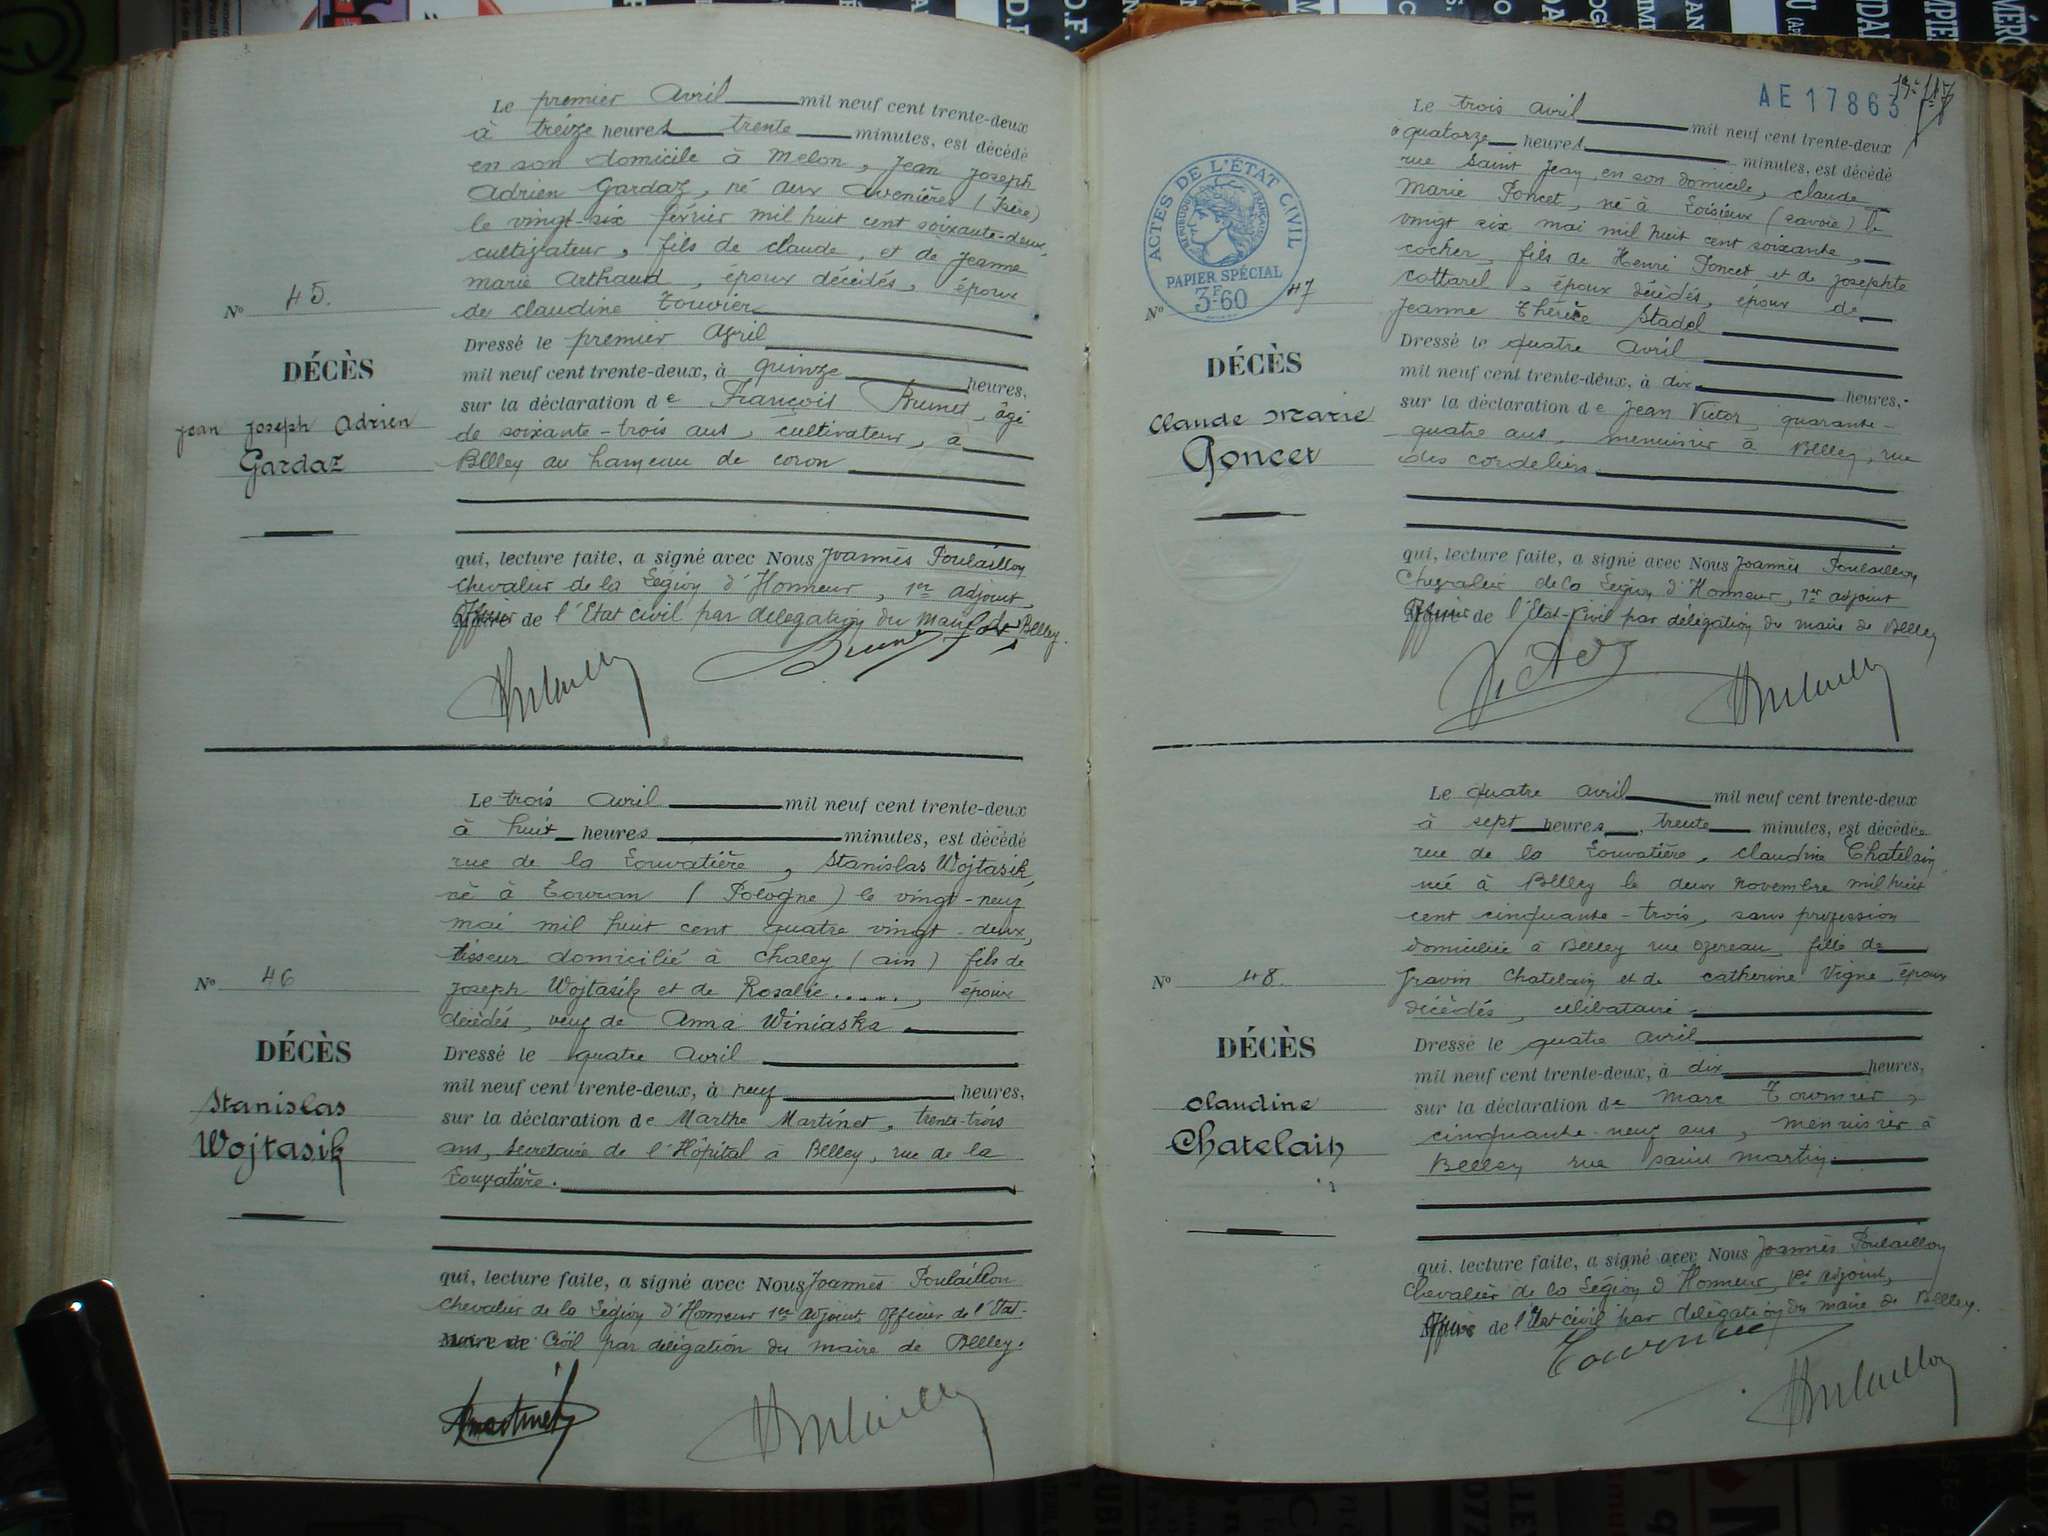 Le premier Avril mil neuf cent trente-deux
à treize heures trente minutes, est décédé
en son domicile à Melon, Jean Joseph
Adrien Gardaz, né aux Avenières (Isère)
le vingt-six février mil huit cent soixante-deux,
cultivateur, fils de Claude, et de Jeanne
Marie Arthaud, époux décédés, époux
de Claudine Touvier
No 45.
DÉCÈS
Jean Joseph Adrien
Gardaz
Dressé le premier Avril
mil neuf cent trente-deux, à quinze heures,
sur la déclaration de François Brunet, âgé
de soixante-trois ans, cultivateur, à
Belley au hameau de Coron
qui, lecture faite, a signé avec Nous Joannès Poulaillon
Chevalier de la Légion d'Honneur, 1er adjoint,
Officier de l'Etat civil par délégation du maire de Belley.
Le trois Avril mil neuf cent trente-deux
à huit heures minutes, est décédé
rue de la Louvatière, Stanislas Wojtasik,
né à Touran (Pologne) le vingt-neuf
mai mil huit cent quatre vingt-deux,
tisseur domicilié à Chaley (Ain) fils de
Joseph Wojtasik et de Rosalie ....., époux
décédés, veuf de Anna Winiaska
No 46
DÉCÈS
Stanislas
Wojtasik
Dressé le quatre Avril
mil neuf cent trente-deux, à neuf heures,
sur la déclaration de Marthe Martinet, trente-trois
ans, Secrétaire de l'Hôpital à Belley, rue de la
Louvatière.
qui, lecture faite, a signé avec Nous Joannès Poulaillon
Chevalier de la Légion d'Honneur 1er adjoint, Officier de l'Etat-
Civil par délégation du maire de Belley.
Martinet
AE 17863
ACTES DE L'ÉTAT CIVIL
RÉPUBLIQUE FRANÇAISE
PAPIER SPÉCIAL
3F.60
Le trois Avril mil neuf cent trente-deux
à quatorze heures minutes, est décédé
rue Saint Jean, en son domicile, Claude
Marie Poncet, né à Loisieux (Savoie) le
vingt six mai mil huit cent soixante,
cocher, fils de Henri Poncet et de Josephte
Cottarel, époux décédés, époux de
Jeanne Thérèse Stadel
No 47
DÉCÈS
Claude Marie
Poncet
Dressé le quatre Avril
mil neuf cent trente-deux, à dix heures,
sur la déclaration de Jean Victor, quarante-
quatre ans, menuisier à Belley, rue
des cordeliers.
qui, lecture faite, a signé avec Nous Joannès Poulaillon,
Chevalier de la Légion d'Honneur, 1er adjoint
Officier de l'Etat-Civil par délégation du maire de Belley
Le quatre Avril mil neuf cent trente-deux
à sept heures, trente minutes, est décédée
rue de la Louvatière, Claudine Chatelain
née à Belley le deux Novembre mil huit
cent cinquante-trois, sans profession
domiciliée à Belley rue Ozereau, fille de
Chatelain et de Catherine Vigne, époux
décédés, célibataire.
No 48.
DÉCÈS
Claudine
Chatelain
Dressé le quatre Avril
mil neuf cent trente-deux, à dix heures,
sur la déclaration de Marc Tournier,
cinquante-neuf ans, menuisier à
Belley rue Saint Martin.
qui, lecture faite, a signé avec Nous Joannès Poulaillon
Chevalier de la Légion d'Honneur, 1er adjoint,
Officier de l'Etat civil par délégation du maire de Belley.
Tournier
Poulaillon